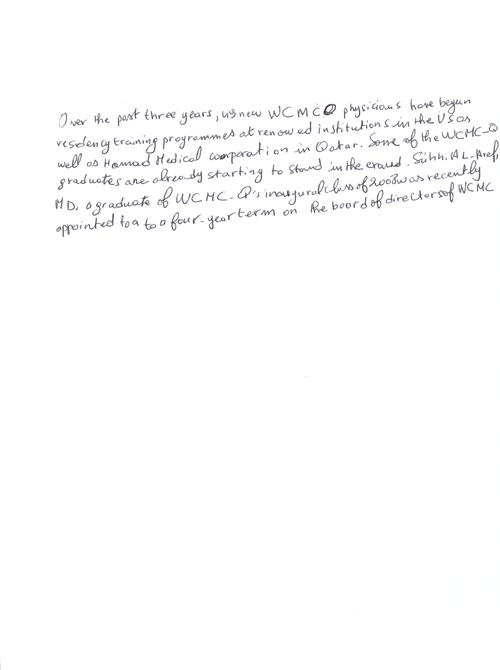 Over the past three years, 49 new WCMCQ physicians have began
residency training programmes at renowed institutions in the US as
well as Hamad Medical corporation in Qatar. Some of the WCMC-Q
graduates are already starting to stand in the craud. Sihh. AL-Aref,
MD, a graduate of WCMC-Q's inaugural class of 2008 was recently
appointed to a to a four-year term on the board of directors of WCMC